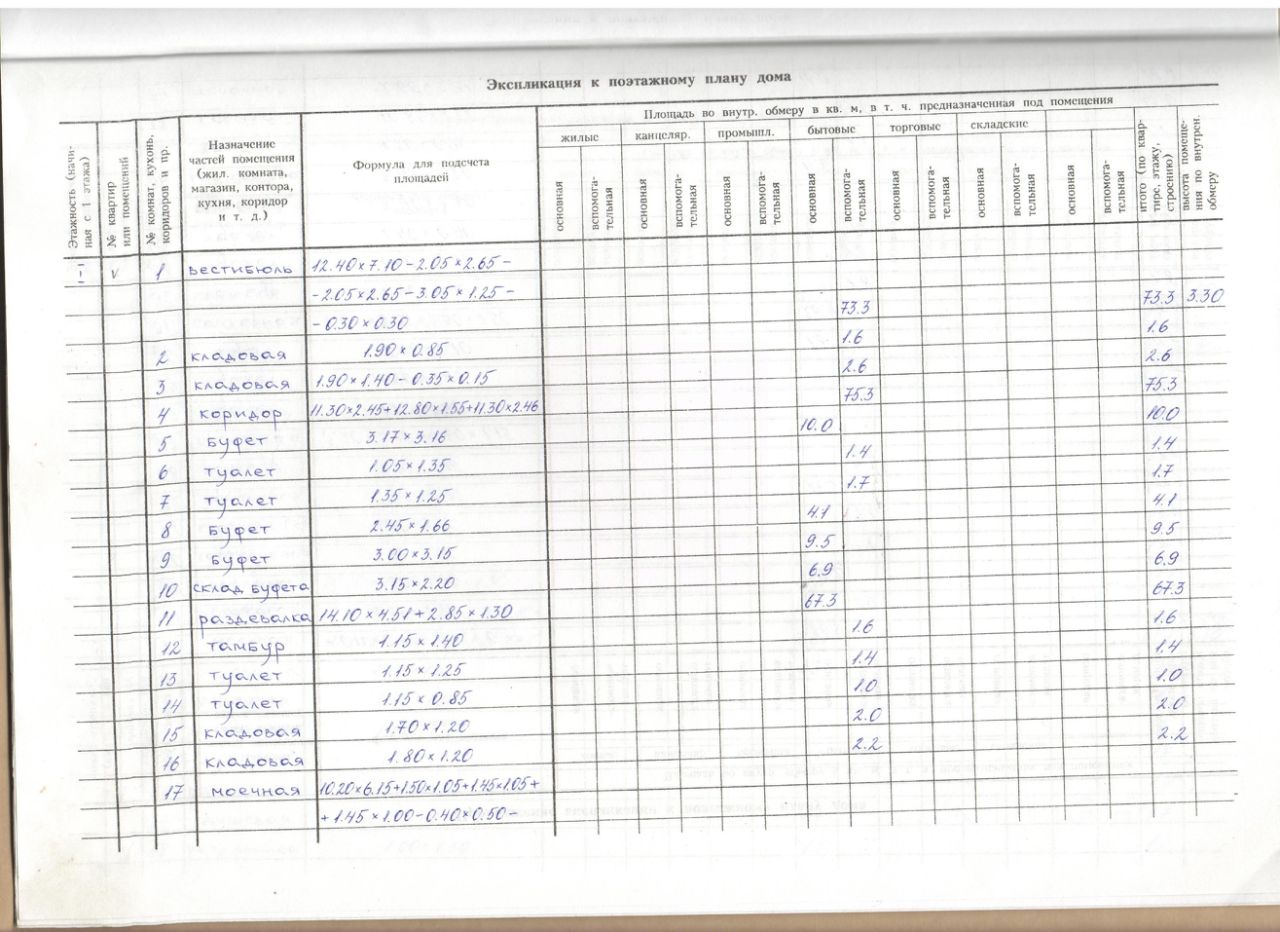 Экспликация к поэтажному плану дома
Этажность (начиная с 1 этажа)
№ квартир или помещений
№ комнат, кухонь, коридоров и пр.
Назначение
частей помещения
(жил. комната,
магазин, контора,
кухня, коридор
и т. д.)
Формула для подсчета
площадей
Площадь во внутр. обмеру в кв. м, в т. ч. предназначенная под помещения
жилые канцеляр. промышл. бытовые торговые складские
основная вспомога-тельная основная вспомога-тельная основная вспомога-тельная основная вспомога-тельная основная вспомога-тельная основная вспомога-тельная основная вспомога-тельная
итого (по квар-тире, этажу, строению)
высота помеще-ния по внутрен. обмеру
I V 1 вестибюль 12.40×7.10-2.05×2.65-
-2.05×2.65-3.05×1.25- 73.3 73.3 3.30
-0.30×0.30
2 кладовая 1.90×0.85 1.6 1.6
3 кладовая 1.90×1.40-0.35×0.15 2.6 2.6
4 коридор 11.30×2.45+12.80×1.55+11.30×2.46 75.3 75.3
5 буфет 3.17×3.16 10.0 10.0
6 туалет 1.05×1.35 1.4 1.4
7 туалет 1.35×1.25 1.7 1.7
8 буфет 2.45×1.66 4.1 4.1
9 буфет 3.00×3.15 9.5 9.5
10 склад буфета 3.15×2.20 6.9 6.9
11 раздевалка 14.10×4.51+2.85×1.30 67.3 67.3
12 тамбур 1.15×1.40 1.6 1.6
13 туалет 1.15×1.25 1.4 1.4
14 туалет 1.15×0.85 1.0 1.0
15 кладовая 1.70×1.20 2.0 2.0
16 кладовая 1.80×1.20 2.2 2.2
17 моечная 10.20×6.15+1.50×1.05+1.45×1.05+
+1.45×1.00-0.40×0.50-